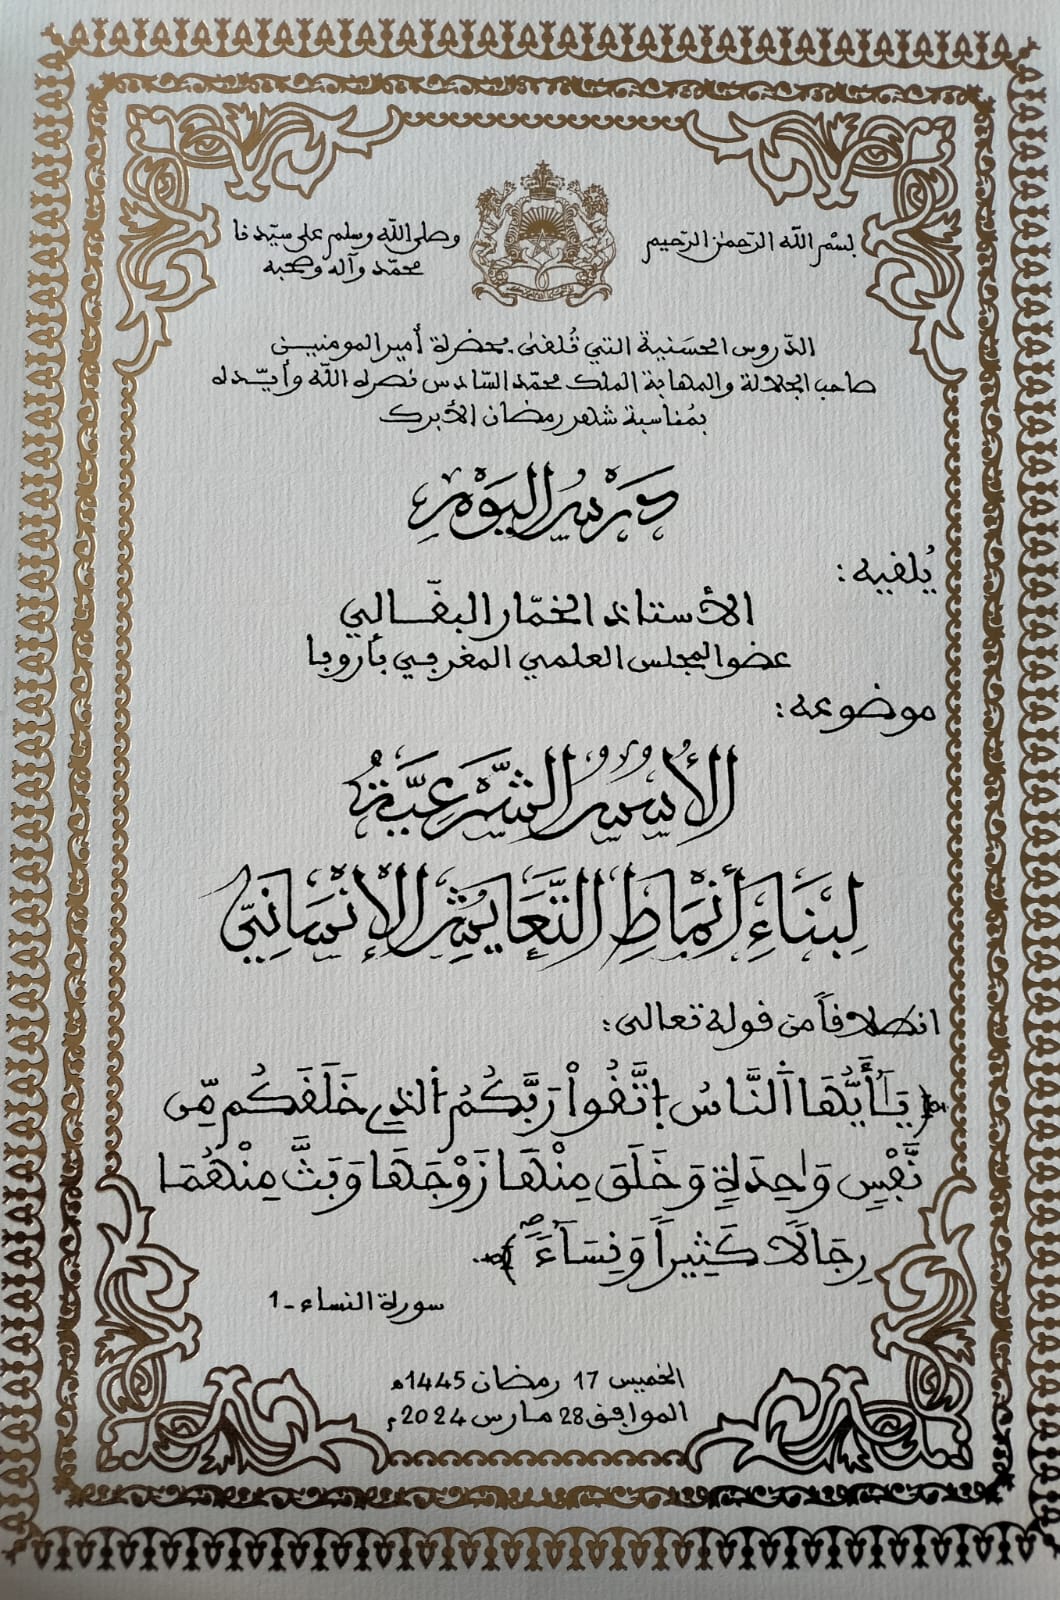 بسم الله الرحمن الرحيم
وصلى الله وسلم على سيّدنا
محمّد وآله وصحبه
الدّروس الحسَنية التي تُلقىٰ بحضرة أمير المومنيـن
صاحب الجلالة والمهابة الملك محمّد السّادس نصره الله وأيّـده
بمُناسبة شهر رمضان الأبرك
دَرْسُ اليَوْمِ
يُلقيه:
الأستاذ الخمّار البقّـالي
عضو المجلس العلمي المغربـي بأروبا
موضوعه:
الأُسُسُ الشَّرْعِيَّةُ
لِبِنَاءِ أَنْمَاطِ التَّعَايُشِ الإِنْسَانِيّ
انطلاقاً من قوله تعالى:
﴿يَـٰٓأَيُّهَا اَ۬لنَّاسُ اُ۪تَّقُواْ رَبَّكُمُ اُ۬لذِے خَلَقَكُم مِّن
نَّفْسٍ وَٰحِدَةٍ وَخَلَقَ مِنْهَا زَوْجَهَا وَبَثَّ مِنْهُمَا
رِجَالاً كَثِيراً وَنِسَآءً ﴾.
سورة النساء -1
الخميس 17 رمضان 1445ه
الموافق 28 مارس 2024م